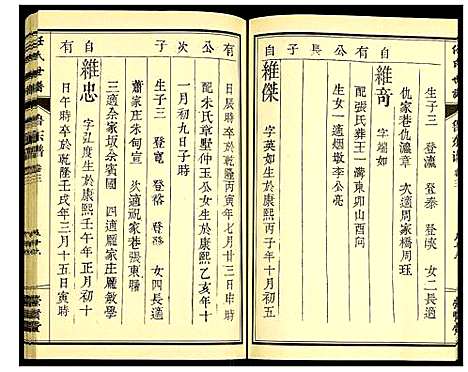 生子三 登瀛 登泰 登峽 女二長適
仇家巷仇瀛章 次適周家橋周珏
維奇 字端如
配張氏葬王一溝東卯山酉向
生女一適烟墩李公亮
自有公長子
維傑 字英如生於康熙丙子年十月初五
日辰時卒於乾隆丙寅年七月廿三日申時
配朱氏章墅仲玉公女生於康熙乙亥年十
一月初九日子時
生子三 登寬 登裕 登 女四長適
蕭家庄朱甸宣 次適祝家巷張東曙
三適余家坂余賓國 四適龐家庄龐敦學
自有公次子
維忠 字弘度生於康熙壬午年正月初十
日午時卒於乾隆壬戌年三月十五日寅時
任氏世譜 魯东譜 卷三